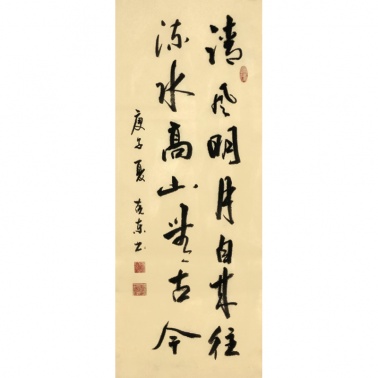 清风明月自来往
流水高山无古今
庚子夏 东书